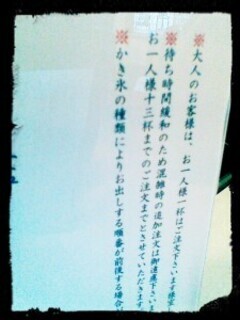 ※大人のお客様は、お一人様一杯はご注文下さいます様
※待ち時間緩和のため混雑時の追加注文は御遠慮下さいま
お一人様十三杯までのご注文までとさせていただきます。
※かき氷の種類によりお出しする順番が前後する場合